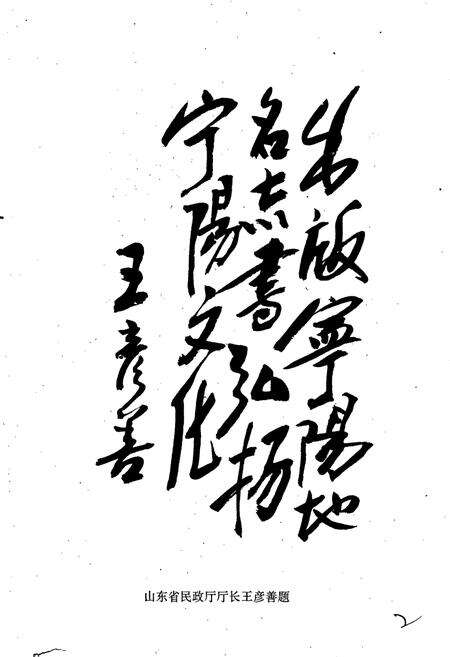 出版寧陽地
名志書弘扬
宁陽文化
王彦善
山东省民政厅厅长王彦善题
2